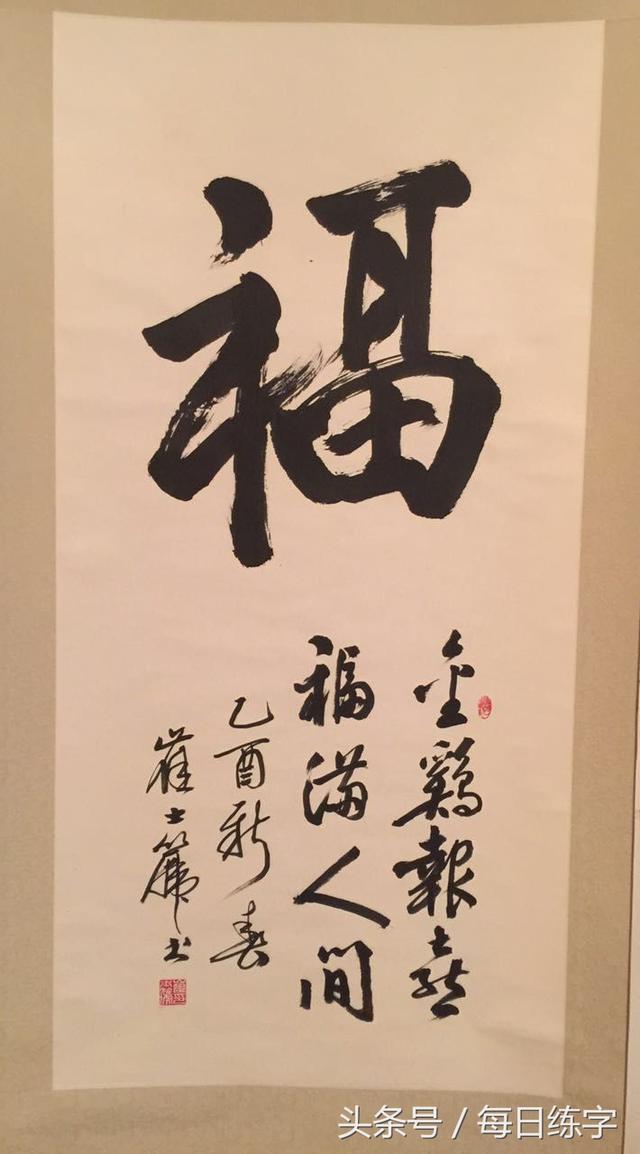 福
金鷄報喜
福满人间
乙酉新春
崔士篪书
头条号 / 每日练字